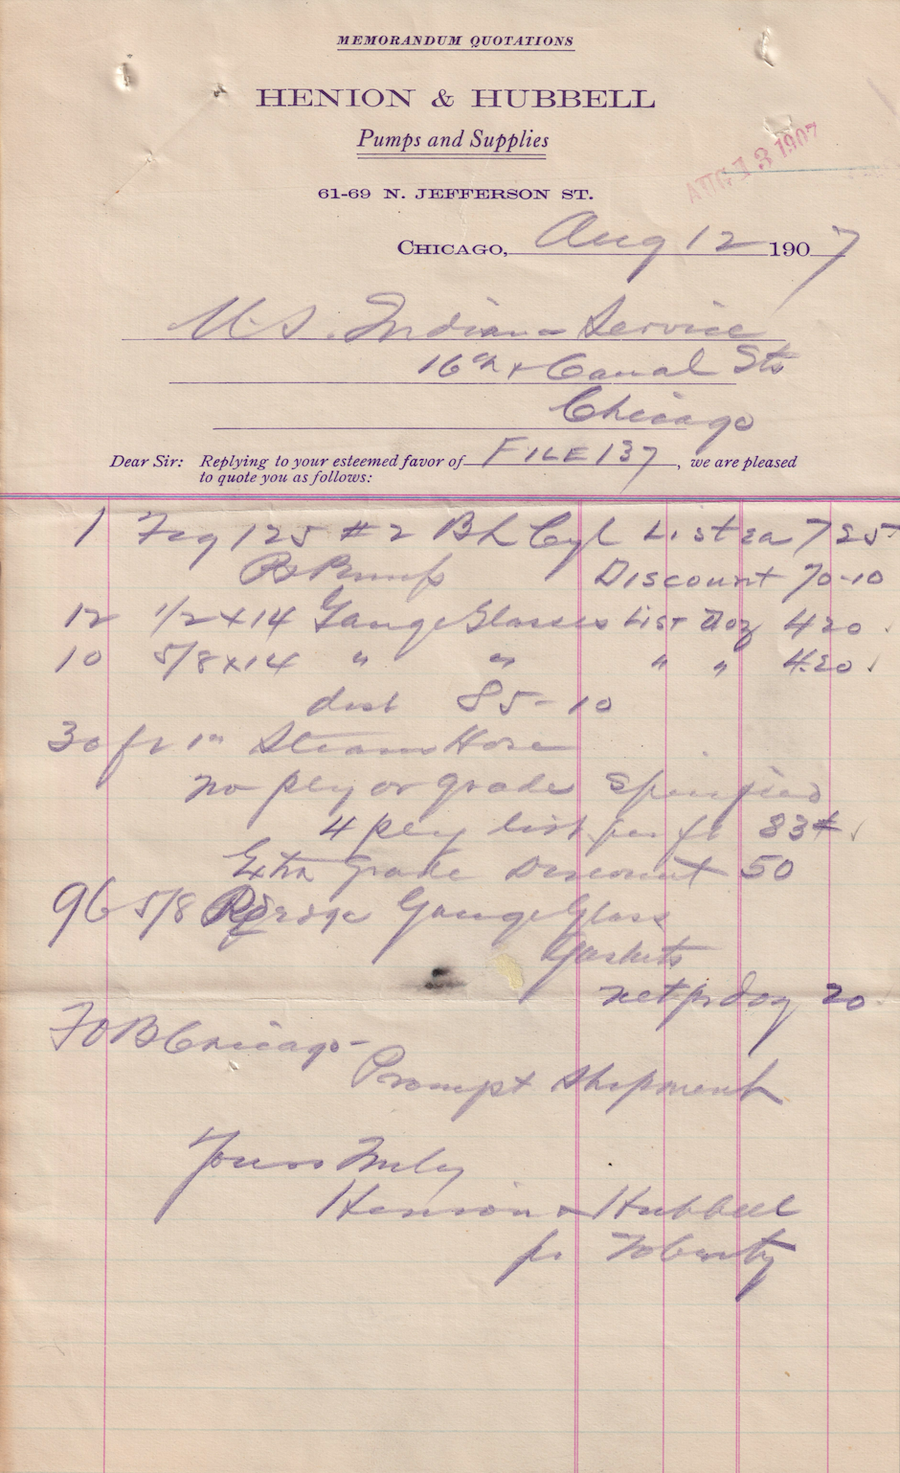 MEMORANDUM QUOTATIONS
HENION & HUBBELL
Pumps and Supplies
AUG 13 1907
61-69 N. JEFFERSON ST.
CHICAGO, Aug 12 1907
U.S. Indian Service
16th & Canal Sts
Chicago
Dear Sir: Replying to your esteemed favor of FILE 137, we are pleased
to quote you as follows:
1 Fig 125 #2 Cyl List ea 7 25
Pump Discount 70-10
12 1/2 x 14 Gauge Glasses List Doz 4 20
10 5/8 x 14 " " " " 4.20
dist 85-10
30 ft 1" Steam Hose
no ply or grade specified
4 ply list per ft 83¢
Extra Grade Discount 50
96 5/8 Gauge Glass
Gaskets
net pr doz 20
FOB Chicago-
Prompt Shipment
Yours Truly
Henion & Hubbell
pr